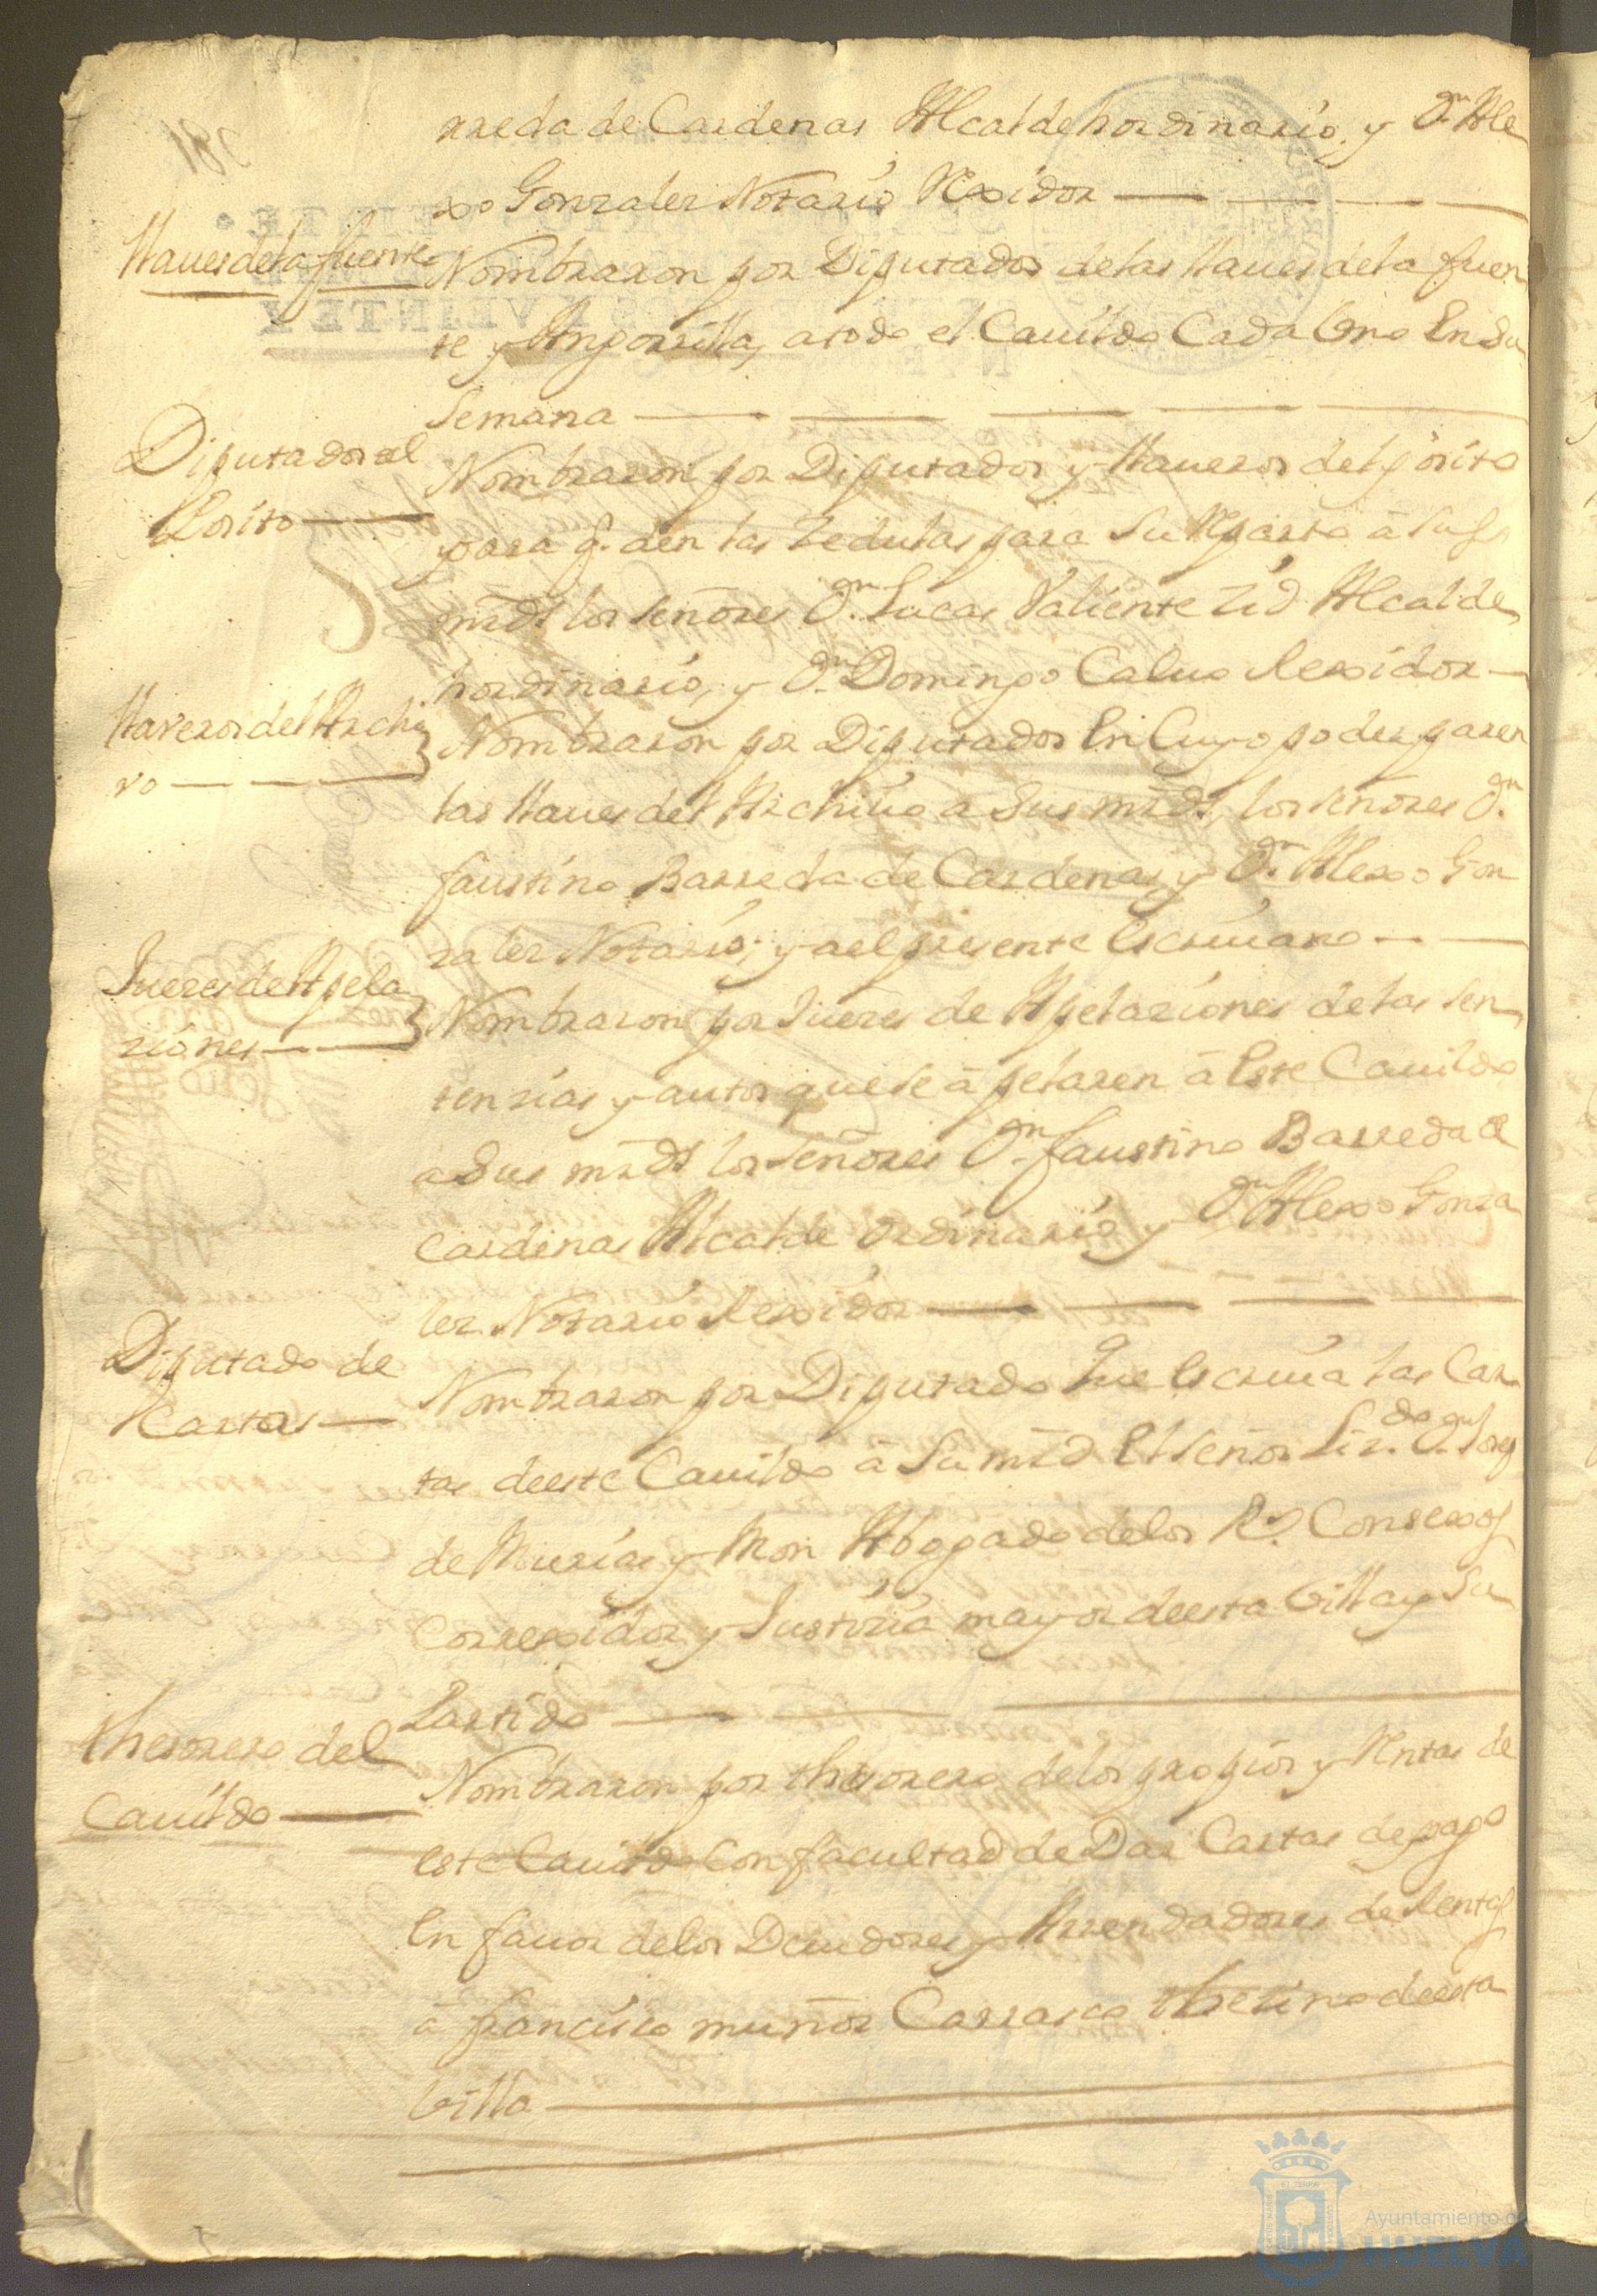 rreda de Cardenas Alcalde hordinario, y Dn. Ale
xo Gonzales Notario Rexidor
Llaues de la fuente
Nombraron por Diputados de las llaues de la fuen
te y Angorrilla, a todo el Cauildo Cada Uno En Su
Semana
Diputados al
Posito
Nombraron por Diputados y llaueros del posito
para q. den las Zedulas para Su Reparto â Sus
mrds los señores Dn. Lucas Valiente Zid Alcalde
hordinario, y Dn. Domingo Caluo Rexidor
Llaveros del Archi
vo
Nombraron por Diputados En Cuyo poder paren
las llaues del Archiuo a Sus mrds, los señores Dn.
faustino Barreda de Cardenas, y Dn. Alexo Gon
zales Notario, y a el presente escriuano
Jueces de Apela
ziones
Nombraron por Jueces de Apelaziones de las sen
tenzias y autos que se âpelaren â Este Cauildo
a Sus mrds los señores Dn. faustino Barreda de
Cardenas Alcalde ordinario y Dn. Alexo Gonza
les Notario Rexidor
Diputado de
Cartas
Nombraron por Diputado Que Escriua las Car
tas de este Cauildo â Su mrd El señor Lizdo. Dn. Jorg
de Murias y Mon Abogado de los Rs. Consexos
Correxidor y Justizia mayor de esta Villa y Su
Partido
thesorero del
Cauildo
Nombraron por thesorero de los propios y Rentas de
este Cauildo Con facultad de Dar Cartas de pago
En fauor de los Deudores y Arrendadores de Rentas
â francisco muñoz Carrasco Vezino de esta
Villa
Ayuntamiento de
HUELVA